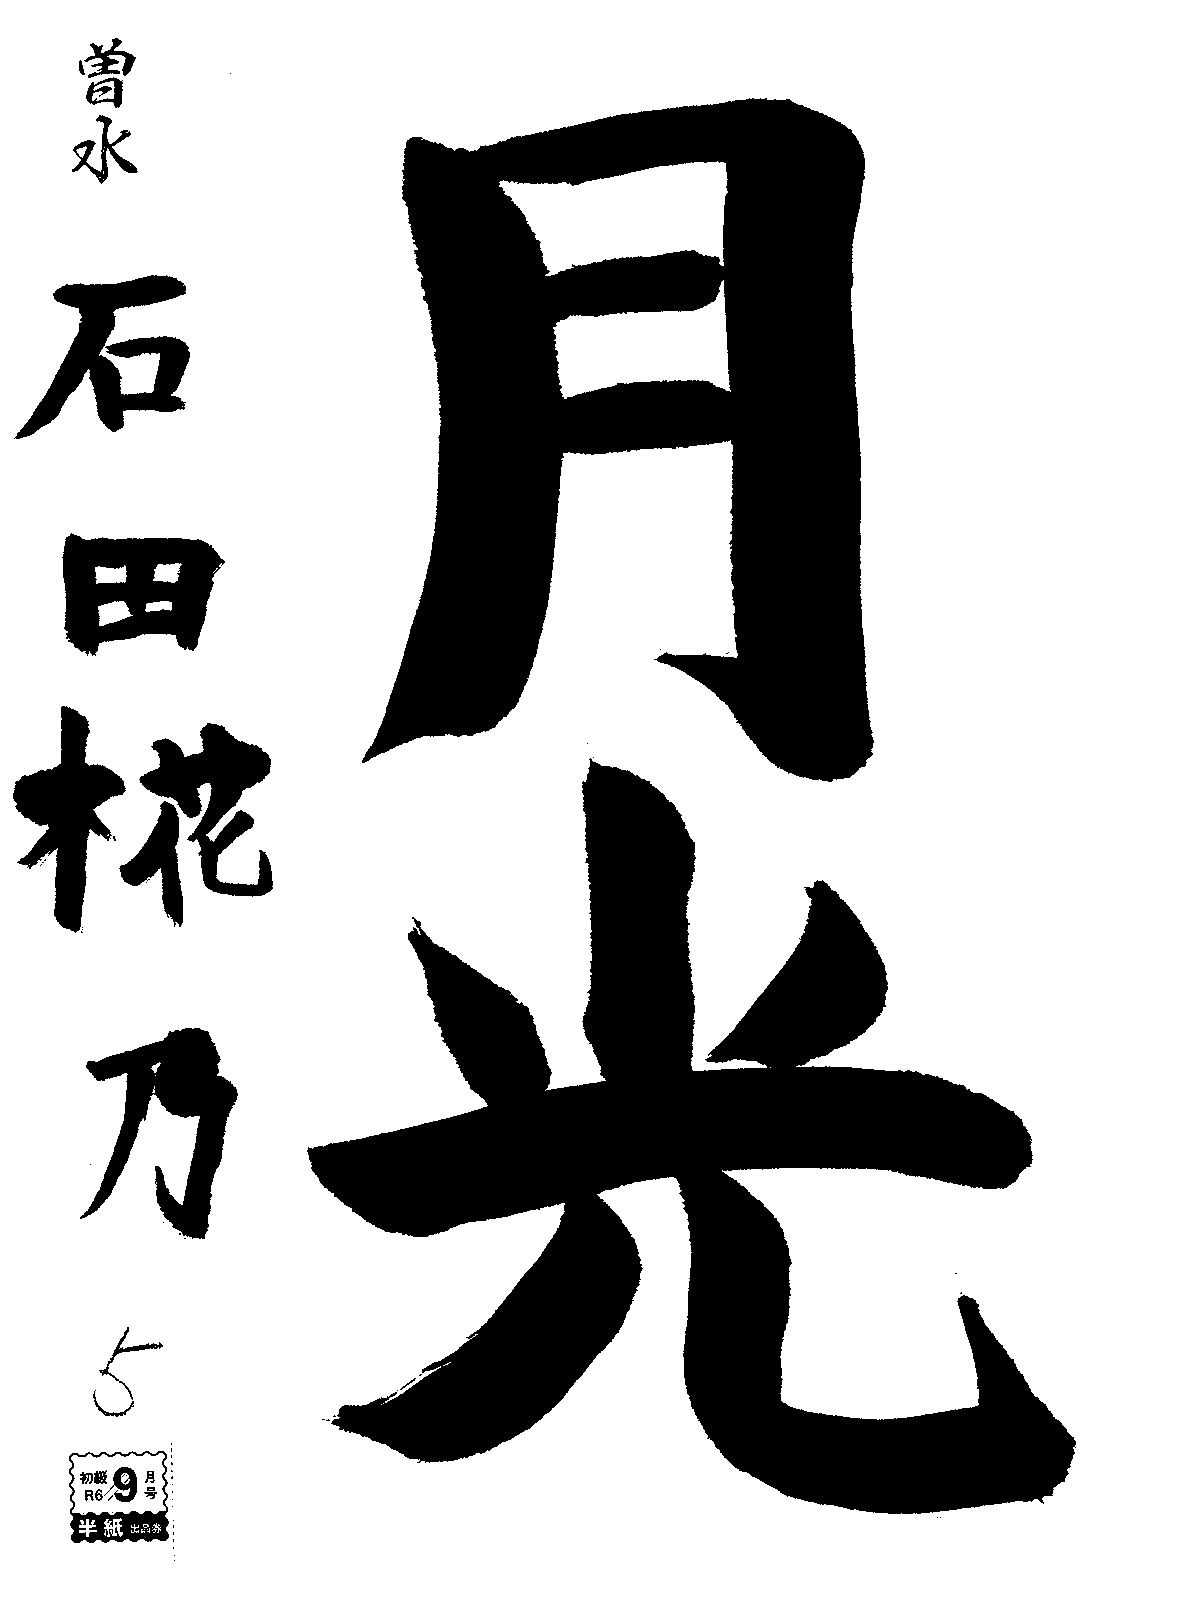 月光
曽水
石田椛乃
5
初級 R6 9月号
半紙 出品券